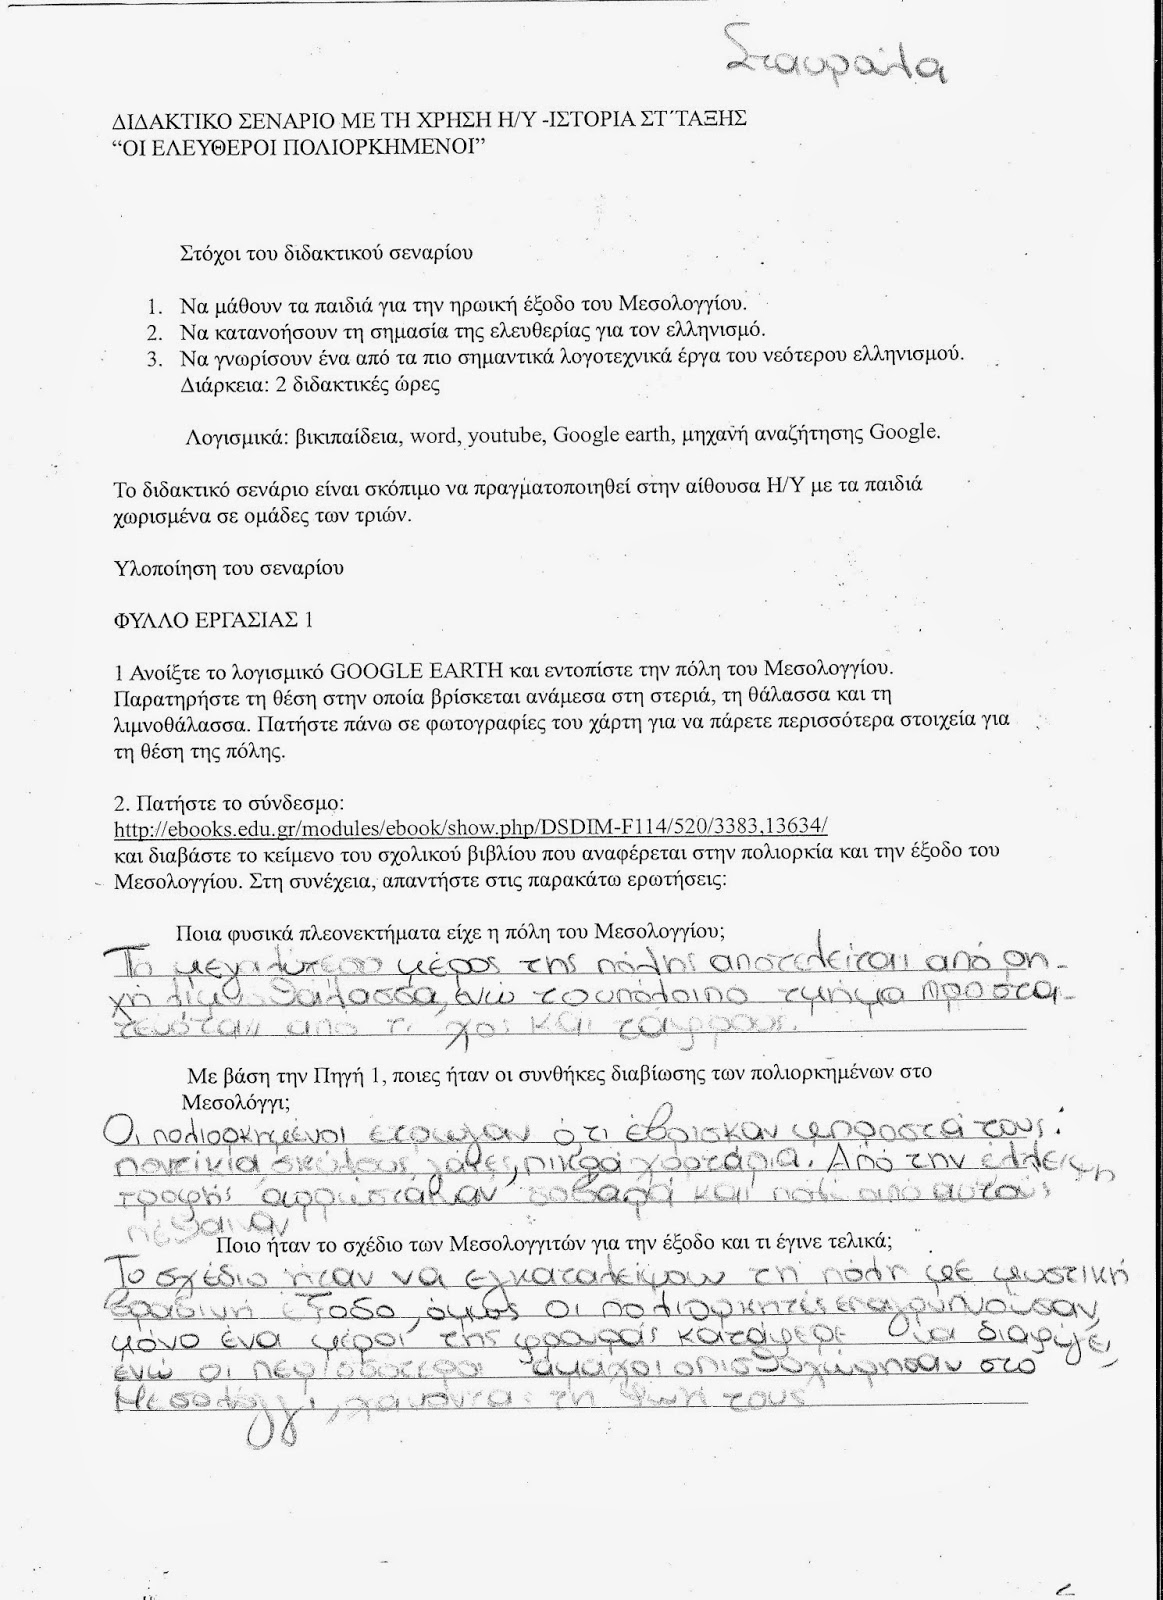 Σταυρούλα
ΔΙΔΑΚΤΙΚΟ ΣΕΝΑΡΙΟ ΜΕ ΤΗ ΧΡΗΣΗ Η/Υ -ΙΣΤΟΡΙΑ ΣΤ΄ΤΑΞΗΣ
“ΟΙ ΕΛΕΥΘΕΡΟΙ ΠΟΛΙΟΡΚΗΜΕΝΟΙ”
Στόχοι του διδακτικού σεναρίου
1. Να μάθουν τα παιδιά για την ηρωική έξοδο του Μεσολογγίου.
2. Να κατανοήσουν τη σημασία της ελευθερίας για τον ελληνισμό.
3. Να γνωρίσουν ένα από τα πιο σημαντικά λογοτεχνικά έργα του νεότερου ελληνισμού.
Διάρκεια: 2 διδακτικές ώρες
Λογισμικά: βικιπαίδεια, word, youtube, Google earth, μηχανή αναζήτησης Google.
Το διδακτικό σενάριο είναι σκόπιμο να πραγματοποιηθεί στην αίθουσα Η/Υ με τα παιδιά
χωρισμένα σε ομάδες των τριών.
Υλοποίηση του σεναρίου
ΦΥΛΛΟ ΕΡΓΑΣΙΑΣ 1
1 Ανοίξτε το λογισμικό GOOGLE EARTH και εντοπίστε την πόλη του Μεσολογγίου.
Παρατηρήστε τη θέση στην οποία βρίσκεται ανάμεσα στη στεριά, τη θάλασσα και τη
λιμνοθάλασσα. Πατήστε πάνω σε φωτογραφίες του χάρτη για να πάρετε περισσότερα στοιχεία για
τη θέση της πόλης.
2. Πατήστε το σύνδεσμο:
http://ebooks.edu.gr/modules/ebook/show.php/DSDIM-F114/520/3383,13634/
και διαβάστε το κείμενο του σχολικού βιβλίου που αναφέρεται στην πολιορκία και την έξοδο του
Μεσολογγίου. Στη συνέχεια, απαντήστε στις παρακάτω ερωτήσεις:
Ποια φυσικά πλεονεκτήματα είχε η πόλη του Μεσολογγίου;
Το μεγαλύτερο μέρος της πόλης αποτελείται από ρη-
χή θάλασσα, ενώ το υπόλοιπο τμήμα προστα-
από και τάφρους.
Με βάση την Πηγή 1, ποιες ήταν οι συνθήκες διαβίωσης των πολιορκημένων στο
Μεσολόγγι;
Οι πολιορκημένοι έτρωγαν ό,τι έβρισκαν μπροστά τους:
ποντίκια σκύλους, γάτες, πικρά χορτάρια. Από την έλλειψη
τροφής αρρώσταιναν σοβαρά και από αυτούς
πέθαιναν
Ποιο ήταν το σχέδιο των Μεσολογγιτών για την έξοδο και τι έγινε τελικά;
Το σχέδιο ήταν να εγκαταλείψουν τη πόλη με μυστική
βραδινή έξοδο, όμως οι πολιορκητές επαγρυπνούσαν
μόνο ένα μέρος της φρουράς κατάφερε να διαφύγει,
ενώ οι περισσότεροι άμαχοι οπισθοχώρησαν στο
Μεσολόγγι, χάνοντας τη ζωή τους